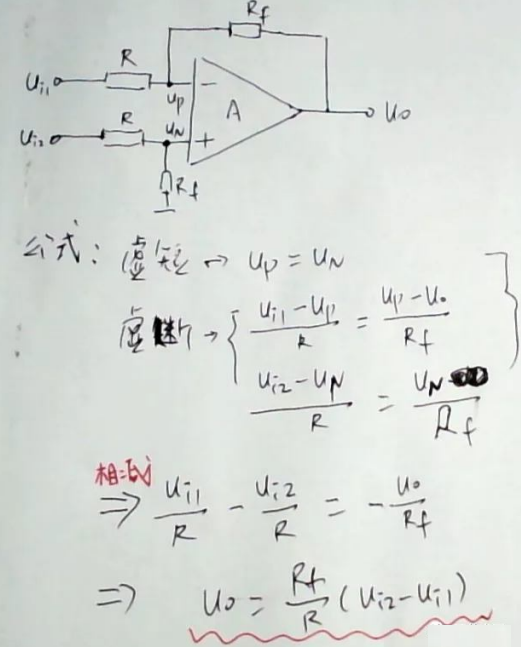 Rf
R
Ui1
up
−
A
Uo
R
uN
Ui2
+
Rf
公式: 虚短 → up = uN
虚断 → { (ui1 − up)/R = (up − uo)/Rf
(ui2 − uN)/R = uN/Rf }
相减
⇒ ui1/R − ui2/R = − uo/Rf
⇒ uo = Rf/R (ui2 − ui1)